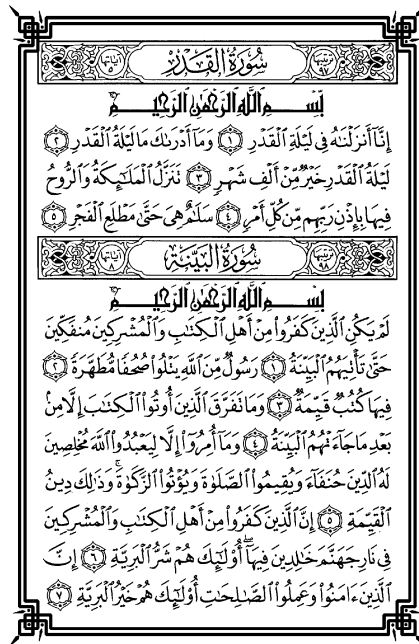 ترتيبها ٩٧ سُورَةُ القَدْرِ آياتها ٥
بِسْمِ اللَّهِ الرَّحْمَٰنِ الرَّحِيمِ
إِنَّا أَنزَلْنَٰهُ فِى لَيْلَةِ ٱلْقَدْرِ ١ وَمَآ أَدْرَىٰكَ مَا لَيْلَةُ ٱلْقَدْرِ ٢
لَيْلَةُ ٱلْقَدْرِ خَيْرٌ مِّنْ أَلْفِ شَهْرٍ ٣ تَنَزَّلُ ٱلْمَلَٰٓئِكَةُ وَٱلرُّوحُ
فِيهَا بِإِذْنِ رَبِّهِم مِّن كُلِّ أَمْرٍ ٤ سَلَٰمٌ هِىَ حَتَّىٰ مَطْلَعِ ٱلْفَجْرِ ٥
ترتيبها ٩٨ سُورَةُ البَيِّنَةِ آياتها ٨
بِسْمِ اللَّهِ الرَّحْمَٰنِ الرَّحِيمِ
لَمْ يَكُنِ ٱلَّذِينَ كَفَرُوا۟ مِنْ أَهْلِ ٱلْكِتَٰبِ وَٱلْمُشْرِكِينَ مُنفَكِّينَ
حَتَّىٰ تَأْتِيَهُمُ ٱلْبَيِّنَةُ ١ رَسُولٌ مِّنَ ٱللَّهِ يَتْلُوا۟ صُحُفًا مُّطَهَّرَةً ٢
فِيهَا كُتُبٌ قَيِّمَةٌ ٣ وَمَا تَفَرَّقَ ٱلَّذِينَ أُوتُوا۟ ٱلْكِتَٰبَ إِلَّا مِنۢ
بَعْدِ مَا جَآءَتْهُمُ ٱلْبَيِّنَةُ ٤ وَمَآ أُمِرُوٓا۟ إِلَّا لِيَعْبُدُوا۟ ٱللَّهَ مُخْلِصِينَ
لَهُ ٱلدِّينَ حُنَفَآءَ وَيُقِيمُوا۟ ٱلصَّلَوٰةَ وَيُؤْتُوا۟ ٱلزَّكَوٰةَ ۚ وَذَٰلِكَ دِينُ
ٱلْقَيِّمَةِ ٥ إِنَّ ٱلَّذِينَ كَفَرُوا۟ مِنْ أَهْلِ ٱلْكِتَٰبِ وَٱلْمُشْرِكِينَ
فِى نَارِ جَهَنَّمَ خَٰلِدِينَ فِيهَآ ۚ أُو۟لَٰٓئِكَ هُمْ شَرُّ ٱلْبَرِيَّةِ ٦ إِنَّ
ٱلَّذِينَ ءَامَنُوا۟ وَعَمِلُوا۟ ٱلصَّٰلِحَٰتِ أُو۟لَٰٓئِكَ هُمْ خَيْرُ ٱلْبَرِيَّةِ ٧